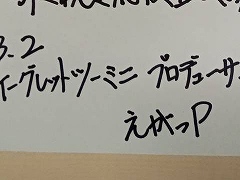 3.2
イーグレットツーミニ プロデューサ
えがっP